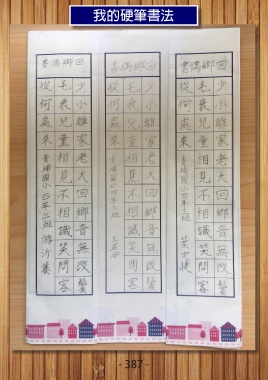 我的硬筆書法
回鄉偶書
少小離家老大回鄉音無改鬢
毛衰兒童相見不相識笑問客
從何處來 青埔國小四年三班
回鄉偶書
少小離家老大回鄉音無改鬢
毛衰兒童相見不相識笑問客
從何處來 青埔國小四年三班
回鄉偶書
少小離家老大回鄉音無改鬢
毛衰兒童相見不相識笑問客
從何處來 青埔國小四年三班
- 387 -